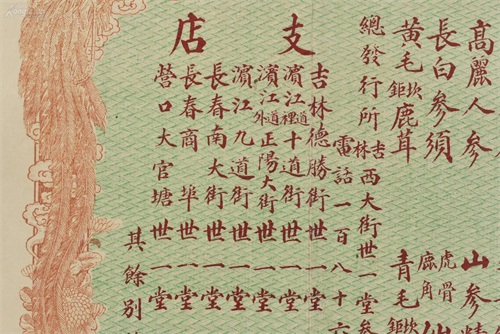 高麗人參
山參精
長白參須
虎骨鹿角
黃毛坎鉅鹿茸
青毛坎鉅
總發行所吉林西大街世一堂參
電話一百八十六
支店
吉林德勝街世一堂
濱江道裡十道街世一堂
濱江道外正陽大街世一堂
濱江九道街世一堂
長春南大街世一堂
長春商埠世一堂
營口大官塘世一堂
其餘別